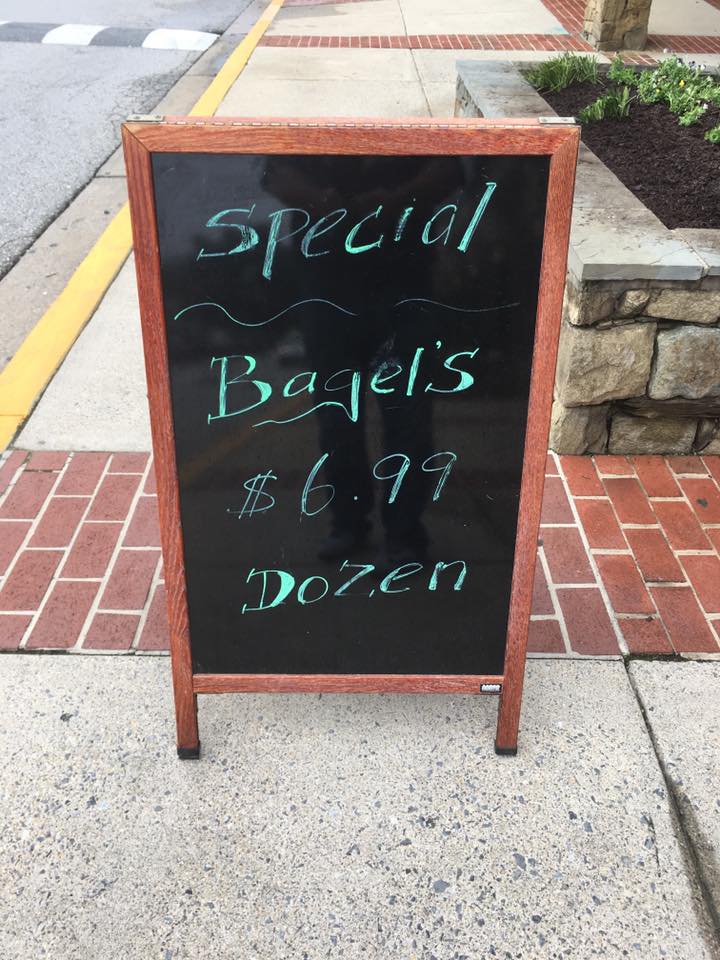 Special
Bagel's
$6.99
Dozen